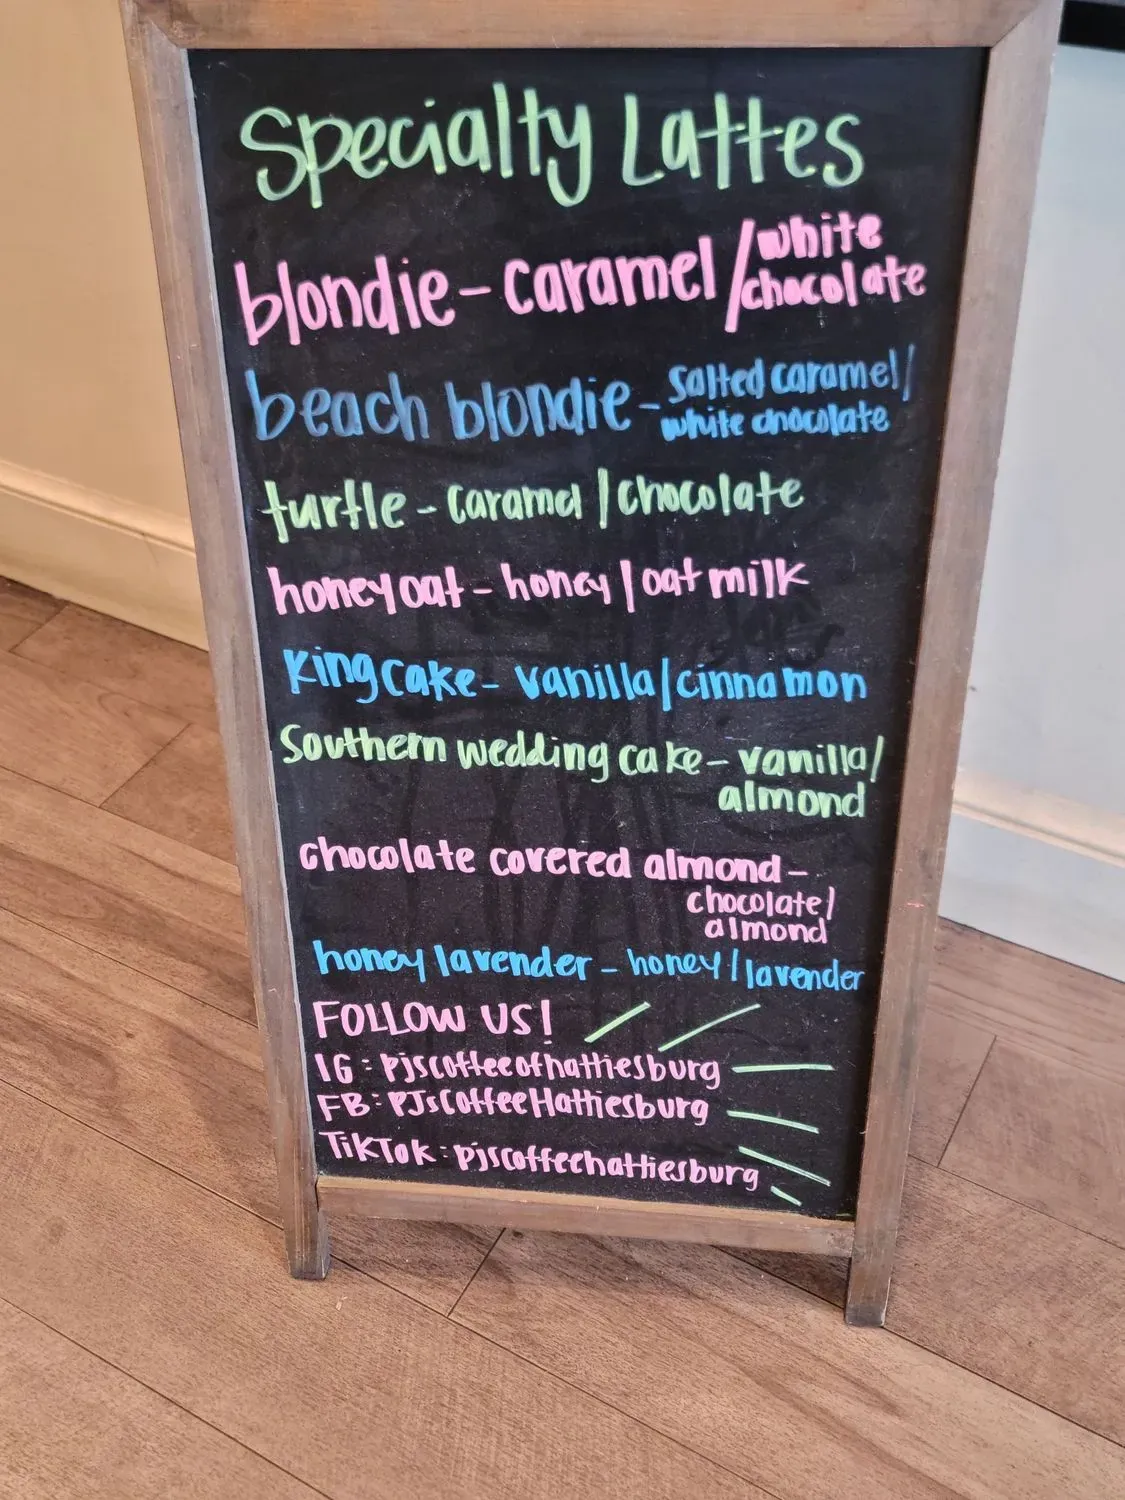 Specialty Lattes
blondie - caramel / white
chocolate
beach blondie - salted caramel /
white chocolate
turtle - caramel / chocolate
honey oat - honey / oat milk
king cake - vanilla / cinnamon
Southern wedding cake - vanilla /
almond
chocolate covered almond -
chocolate /
almond
honey lavender - honey / lavender
FOLLOW US!
IG: pjscoffeeofhattiesburg
FB: PJsCoffeeHattiesburg
TikTok: pjscoffeehattiesburg